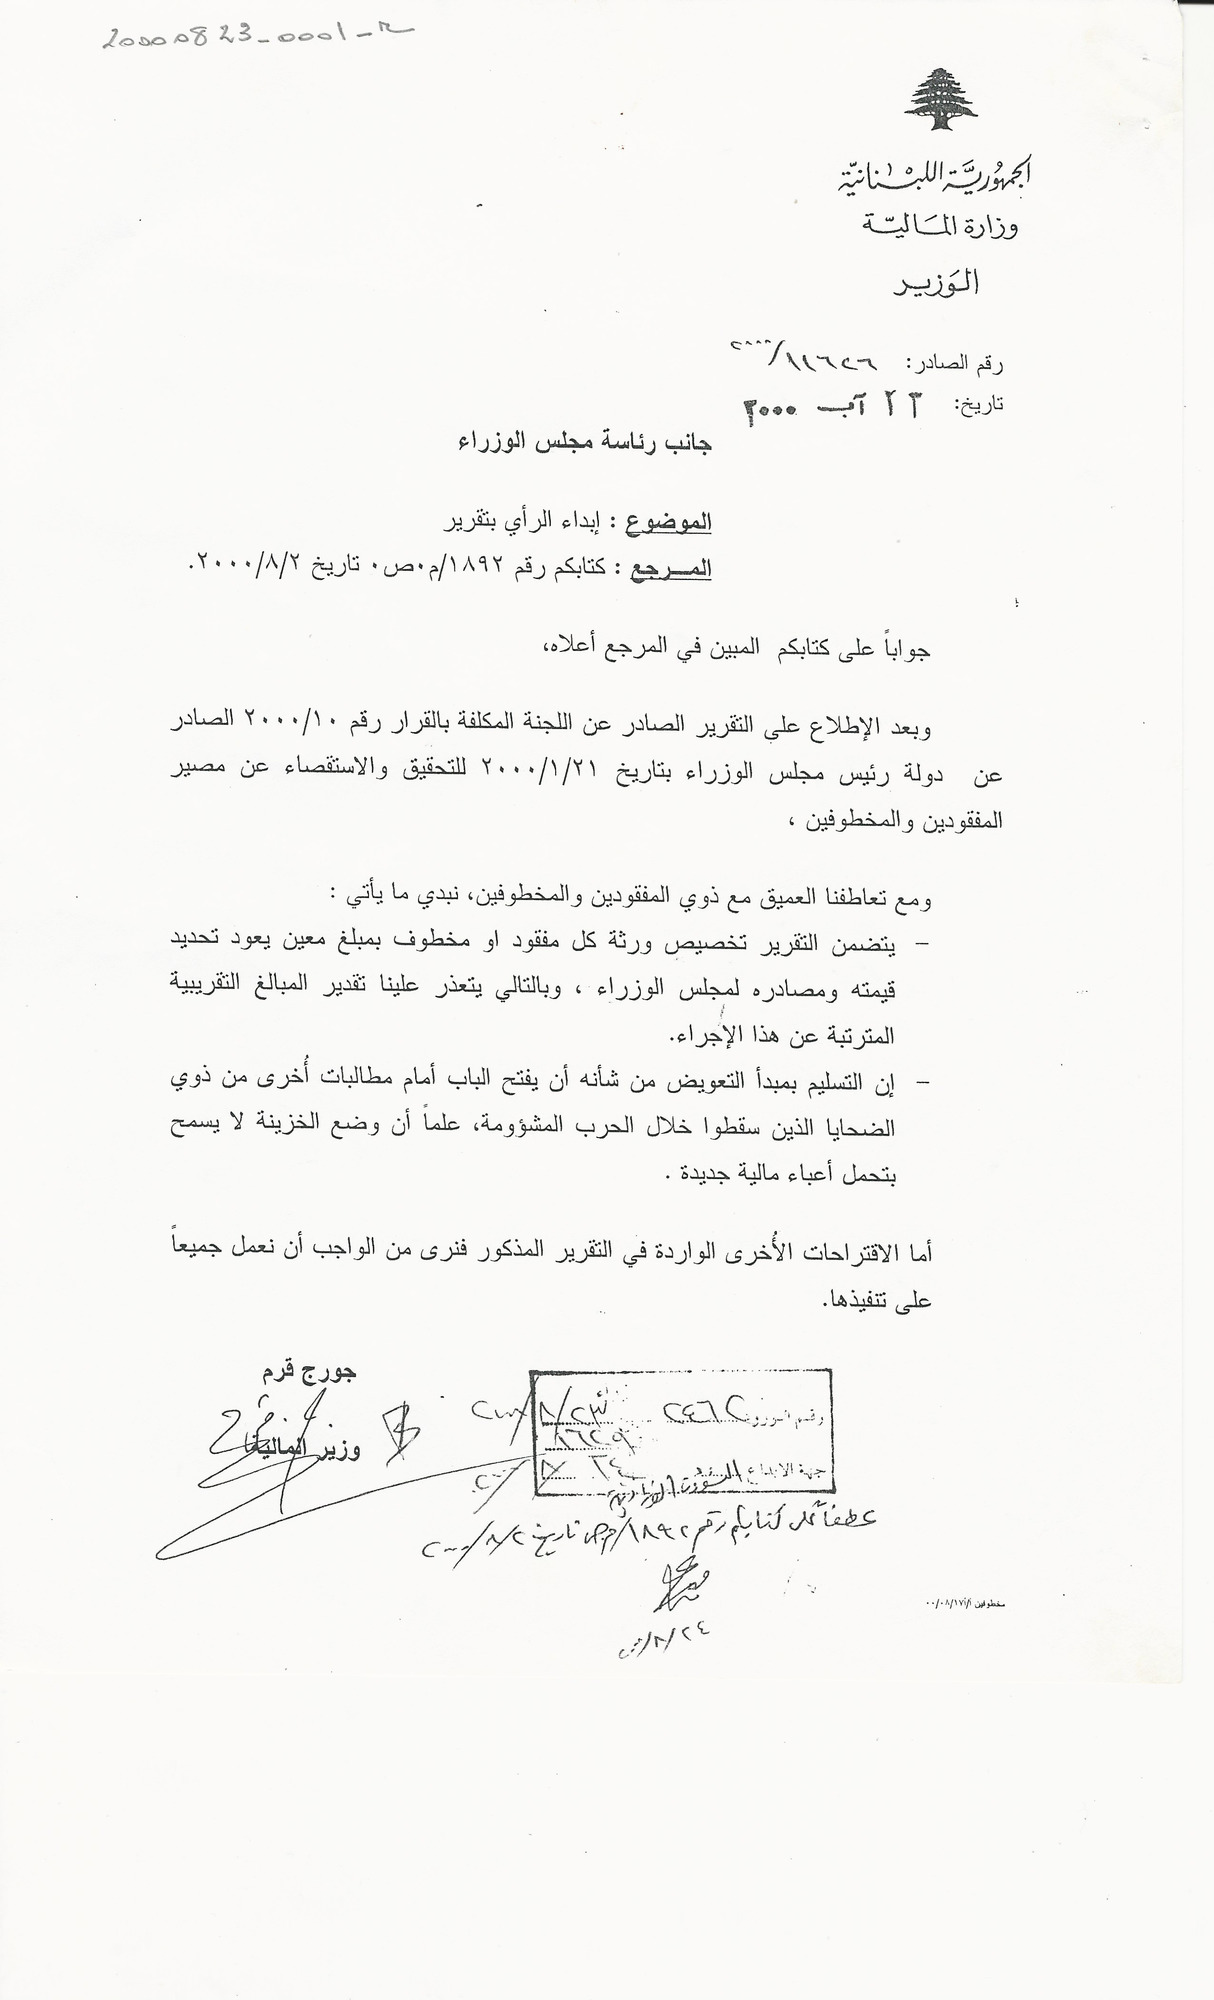 20000823_0001_R
الجمهورية اللبنانية
وزارة المالية
الوزير
رقم الصادر:
تاريخ: ٢٣ آب ٢٠٠٠
جانب رئاسة مجلس الوزراء
الموضوع : إبداء الرأي بتقرير
المرجع : كتابكم رقم ١٨٩٢/م٠ص٠ تاريخ ٢٠٠٠/٨/٢.
جواباً على كتابكم المبين في المرجع أعلاه،
وبعد الإطلاع على التقرير الصادر عن اللجنة المكلفة بالقرار رقم ٢٠٠٠/١٠ الصادر
عن دولة رئيس مجلس الوزراء بتاريخ ٢٠٠٠/١/٢١ للتحقيق والاستقصاء عن مصير
المفقودين والمخطوفين ،
ومع تعاطفنا العميق مع ذوي المفقودين والمخطوفين، نبدي ما يأتي :
– يتضمن التقرير تخصيص ورثة كل مفقود او مخطوف بمبلغ معين يعود تحديد
قيمته ومصادره لمجلس الوزراء ، وبالتالي يتعذر علينا تقدير المبالغ التقريبية
المترتبة عن هذا الإجراء.
– إن التسليم بمبدأ التعويض من شأنه أن يفتح الباب أمام مطالبات أُخرى من ذوي
الضحايا الذين سقطوا خلال الحرب المشؤومة، علماً أن وضع الخزينة لا يسمح
بتحمل أعباء مالية جديدة .
أما الاقتراحات الأُخرى الواردة في التقرير المذكور فنرى من الواجب أن نعمل جميعاً
على تنفيذها.
جورج قرم
وزير المالية
رقم الورود ٢٤٦٢ ٢٠٠٠/٨/٢٣
جهة الايداع
عطفاً على كتابكم رقم ١٨٩٢/م ص تاريخ ٢٠٠٠/٨/٢
٢٠٠٠/٨/٢٤
مخطوفين /أ/٠٠/٠٨/١٧